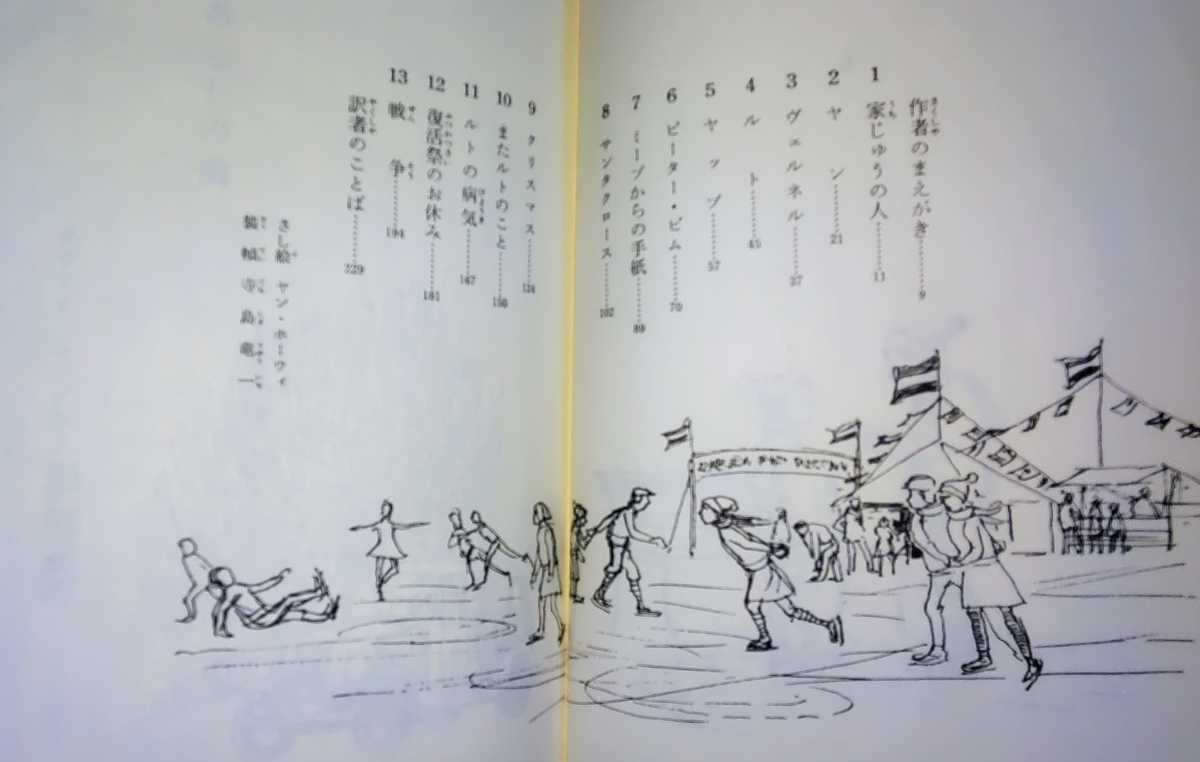 作者のまえがき………9
1 家じゅうの人………11
2 ヤン………21
3 ヴェルネル………37
4 ルト………45
5 ヤップ………57
6 ピーター・ピム………70
7 ミープからの手紙………89
8 サンタクロース………102
9 クリスマス………124
10 またルトのこと………150
11 ルトの病気………167
12 復活祭のお休み………181
13 戦争………194
訳者のことば………229
さし絵 ヤン・ホーウィ
装幀 寺島竜一